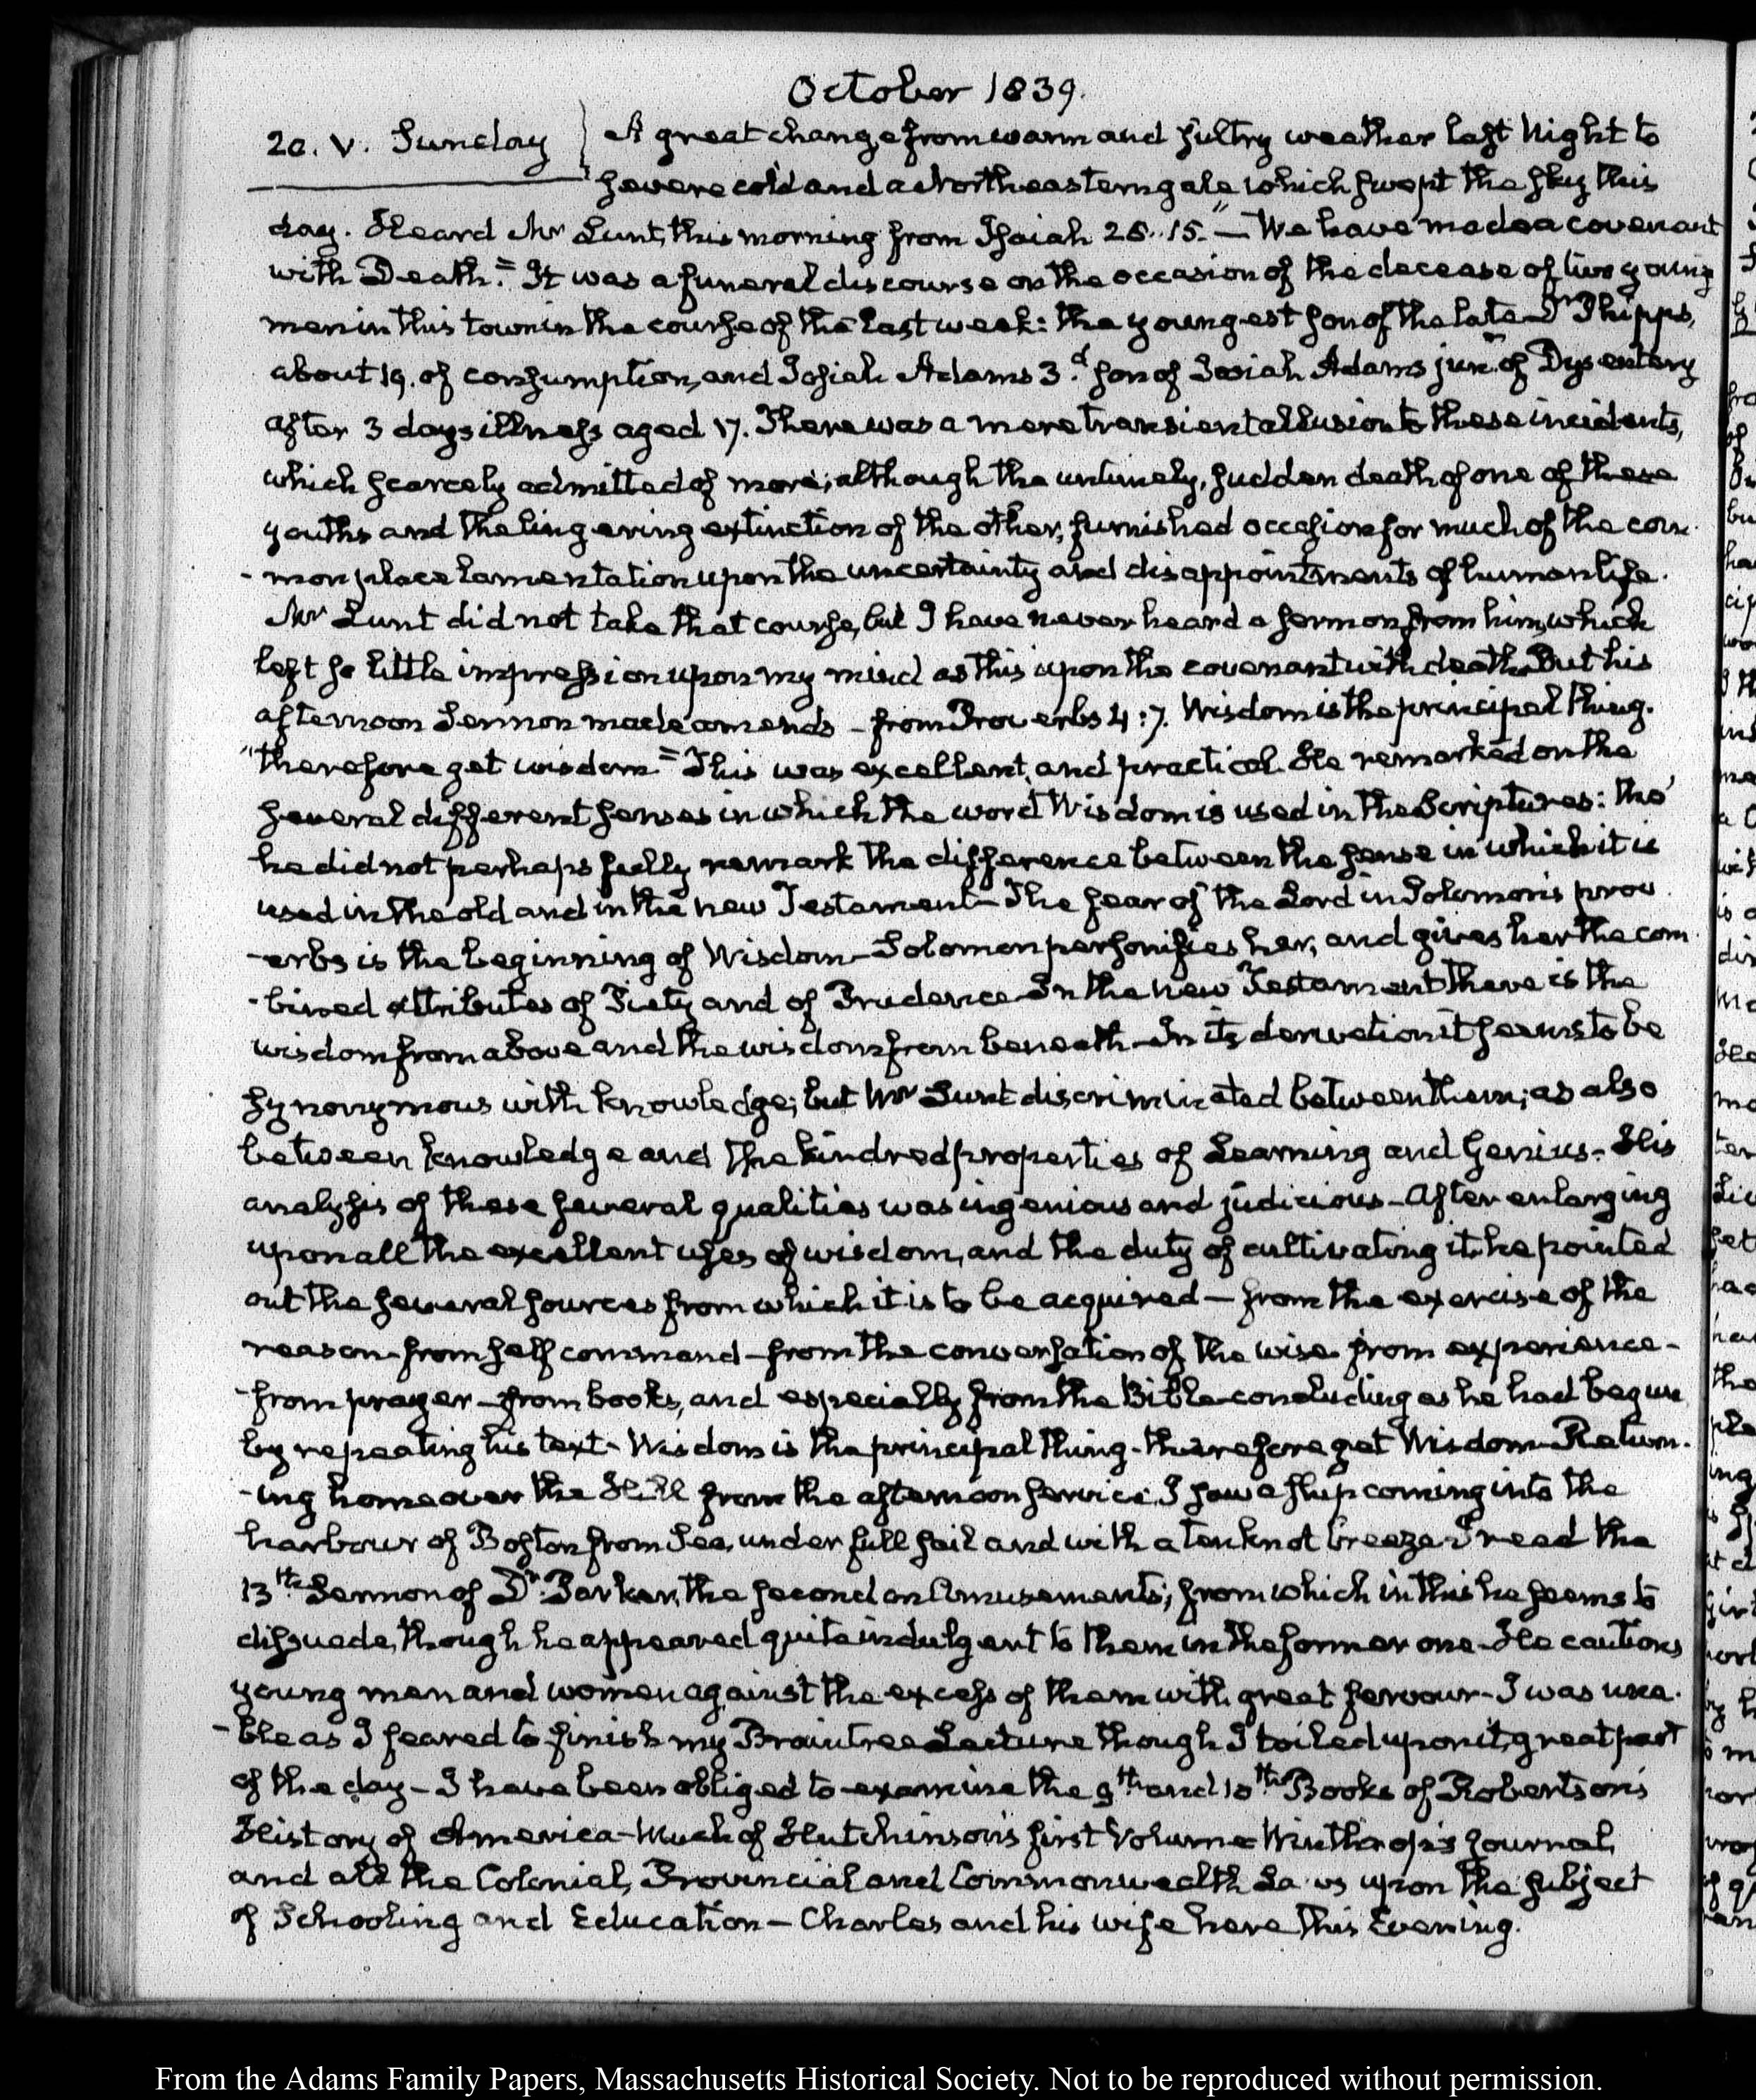 October 1839.
20. V. Sunday } A great change from warm and sultry weather last Night to
severe cold and a Northeastern gale which swept the sky this
day. Heard Mr Lunt, this morning from Isaiah 28..15." — We have made a covenant
with Death." It was a funeral discourse on the occasion of the decease of two young
men in this town in the course of the last week: the youngest son of the late Dr Phipps,
about 19. of consumption, and Josiah Adams 3.d son of Josiah Adams junr. of Dysentery
after 3 days illness aged 17. There was a mere transient allusion to these incidents,
which scarcely admitted of more; although the untimely, sudden death of one of these
youths and the lingering extinction of the other, furnished occasion for much of the com-
-mon place lamentation upon the uncertainty and disappointments of human life.
Mr Lunt did not take that course, but I have never heard a sermon from him, which
left so little impression upon my mind as this upon the covenant with death. But his
afternoon Sermon made amends – from Proverbs 4:7. Wisdom is the principal thing.
"therefore get wisdom." This was excellent, and practical. He remarked on the
several different senses in which the word Wisdom is used in the Scriptures: tho'
he did not perhaps fully remark the difference between the sense in which it is
used in the old and in the new Testament – The fear of the Lord in Solomon's prov-
-erbs is the beginning of Wisdom – Solomon personifies her, and gives her the com-
-bined attributes of Piety and of Prudence – In the new Testament there is the
wisdom from above and the wisdom from beneath – In its derivation it seems to be
synonymous with knowledge; but Mr Lunt discriminated between them; as also
between knowledge and the kindred properties of Learning and Genius – His
analysis of these several qualities was ingenious and judicious – After enlarging
upon all the excellent uses of wisdom, and the duty of cultivating it, he pointed
out the several sources from which it is to be acquired – from the exercise of the
reason – from self command – from the conversation of the wise from experience –
-from prayer – from books, and especially from the Bible – concluding as he had begun
by repeating his text – Wisdom is the principal thing – therefore get Wisdom – Return-
-ing home over the Hill from the afternoon service, I saw a ship coming into the
harbour of Boston from Sea, under full sail and with a ten knot breeze – I read the
13th. Sermon of Dr. Barker, the second on Amusements; from which in this he seems to
dissuade, though he appeared quite indulgent to them in the former one – He cautions
young men and women against the excess of them with great fervour – I was una-
-ble as I feared to finish my Braintree Lecture though I toiled upon it, great part
of the day – I have been obliged to examine the 9th and 10th Books of Robertson's
History of America – Much of Hutchinson's first Volume Winthrop's Journal,
and all the Colonial, Provincial and Commonwealth Laws upon the subject
of Schooling and Education – Charles and his wife here this Evening.
From the Adams Family Papers, Massachusetts Historical Society. Not to be reproduced without permission.